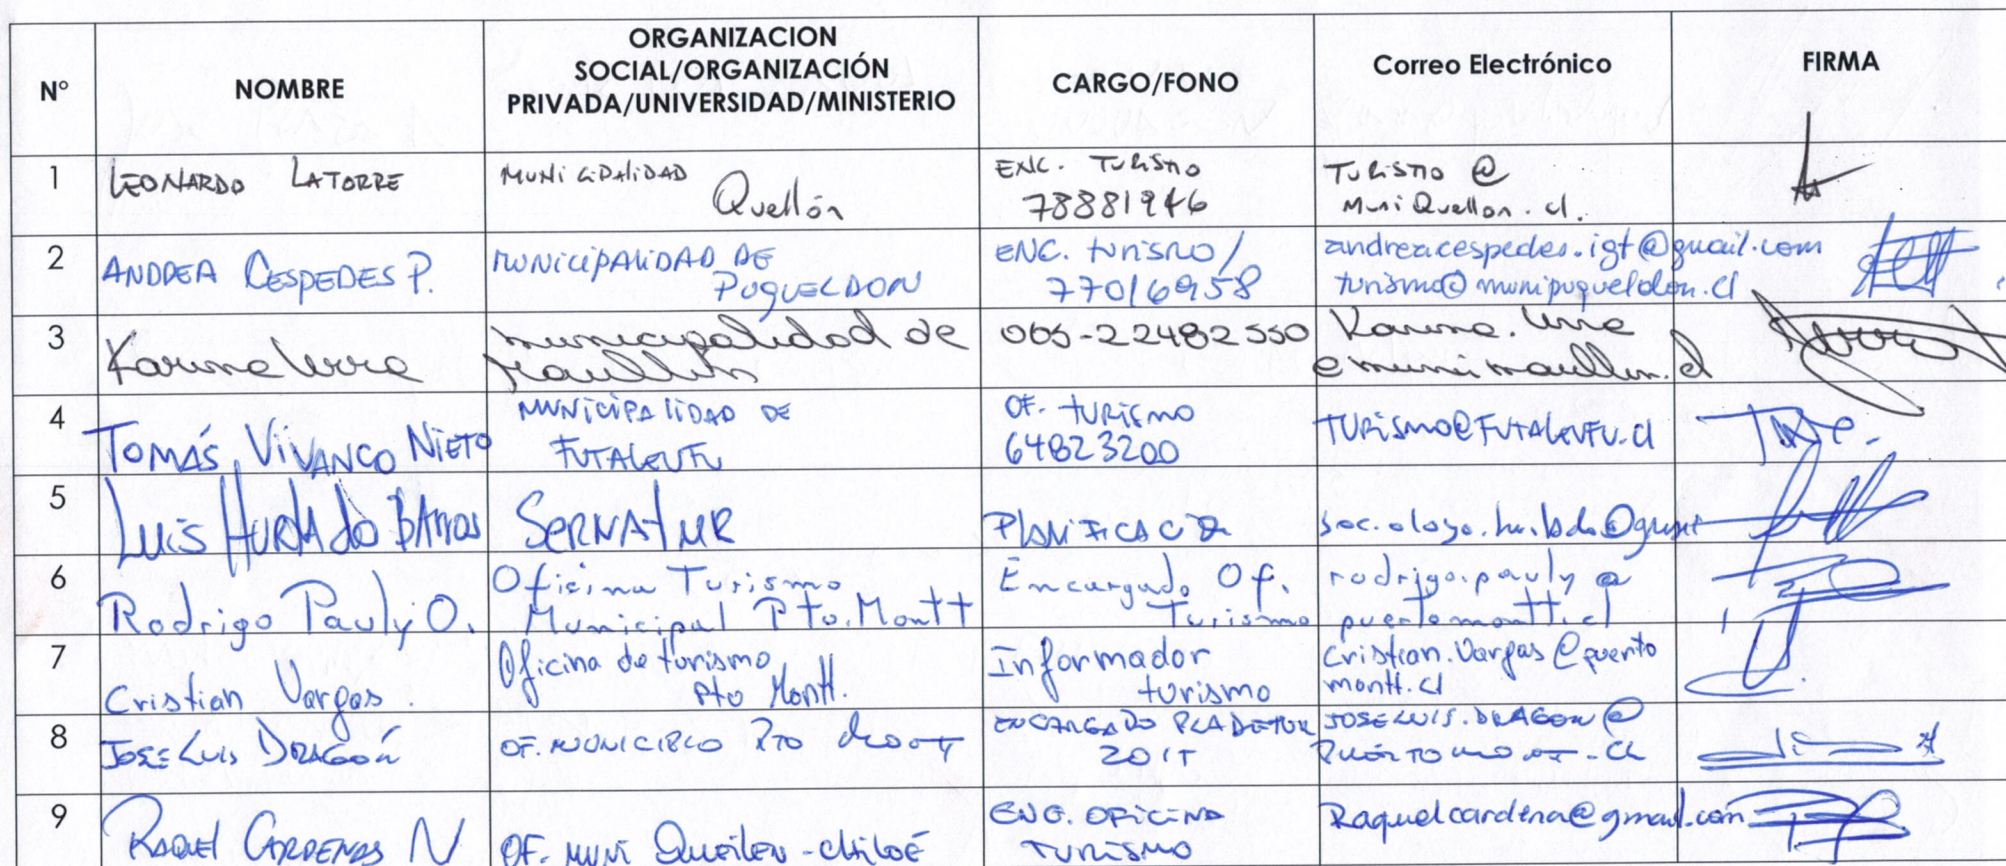 Nº
NOMBRE
ORGANIZACION
SOCIAL/ORGANIZACIÓN
PRIVADA/UNIVERSIDAD/MINISTERIO
CARGO/FONO
Correo Electrónico
FIRMA
1
LEONARDO LATORRE
MUNICIPALIDAD
Quellón
ENC. TURISMO
78881946
TURISMO @
MuniQuellon.cl.
2
ANDREA CESPEDES P.
MUNICIPALIDAD DE
PUQUELDON
ENC. turismo/
77016958
andrea.cespedes.igt@gmail.com
turismo@munipuqueldon.cl
3
Karina Urra
municipalidad de
Maullín
065-22482550
Karina.Urra
@munimaullin.cl
4
TOMÁS VIVANCO NIETO
MUNICIPALIDAD DE
FUTALEUFU
OF. TURISMO
64823200
TURISMO@FUTALEUFU.cl
5
LUIS HURTADO BARROS
SERNATUR
PLANIFICACION
6
Rodrigo Pauly O.
Oficina Turismo
Municipal Pto. Montt
Encargado Of.
Turismo
rodrigo.pauly@
puertomontt.cl
7
Cristian Vargas.
Oficina de turismo
Pto Montt.
Informador
turismo
Cristian.Vargas@puerto
montt.cl
8
JOSE LUIS DRAGÓN
OF. MUNICIPIO PTO MONTT
ENCARGADO PLADETUR
ZOIT
JOSELUIS.DRAGON@
PUERTOMONTT.CL
9
RAQUEL CARDENAS N
OF. MUNI Queilen - chiloé
ENC. OFICINA
TURISMO
Raquelcardena@gmail.com